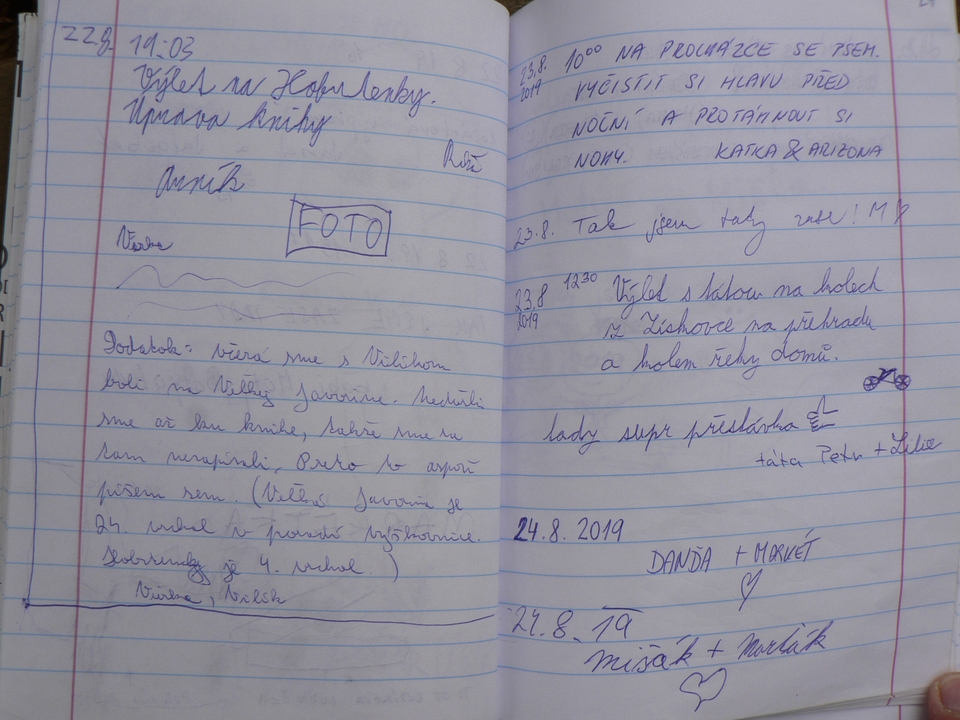 22.8. 19:03
Výlet na Hoburlenky.
Úprava knihy
Arník
FOTO
Dodatok: včera sme s Vilikom
boli na Veľkej Javorine. Nedošli
sme až ku knihe, takže sme sa
tam nezapísali. Preto to aspoň
píšem sem. (Veľká Javorina je
24. vrchol v poradí výškovnice.
je 4. vrchol.)
, Vilík
23.8. 2019 10⁰⁰ NA PROCHÁZCE SE PSEM.
VYČISTIT SI HLAVU PŘED
NOČNÍ A PROTÁHNOUT SI
NOHY. KATKA & ARIZONA
23.8. Tak jsem tady zase! M
23.8 2019 12³⁰ Výlet s tátou na kolech
z Lískovce na přehradu
a kolem řeky domů.
tady supr přestávka
táta Petr +
24.8. 2019
DANĎA + MARKÉT
24.8. 19
Mišák + Morťák